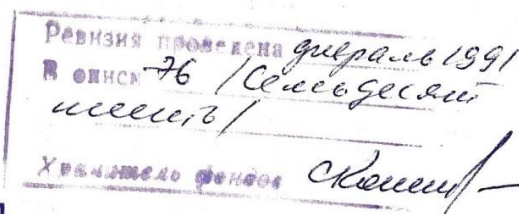 Ревизия проведена февраль 1991
В описи 76 /Семьдесят
шесть/
Хранитель фондов